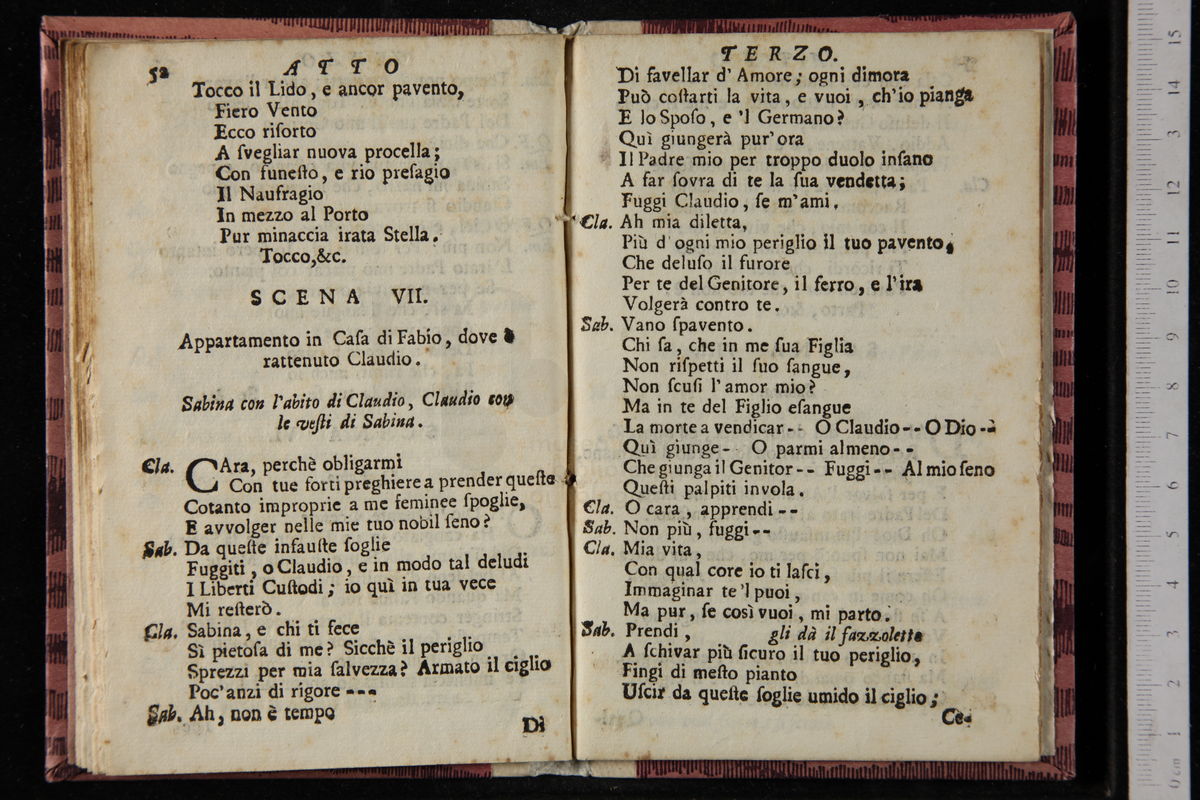 52 ATTO
Tocco il Lido, e ancor pavento,
Fiero Vento
Ecco riſorto
A ſvegliar nuova procella;
Con funeſto, e rio preſagio
Il Naufragio
In mezzo al Porto
Pur minaccia irata Stella.
Tocco,&c.
SCENA VII.
Appartamento in Caſa di Fabio, dove è
rattenuto Claudio.
Sabina con l'abito di Claudio, Claudio con
le veſti di Sabina.
Cla. CAra, perchè obligarmi
Con tue forti preghiere a prender queſte
Cotanto improprie a me feminee ſpoglie,
E avvolger nelle mie tuo nobil ſeno?
Sab. Da queſte infauſte ſoglie
Fuggiti, o Claudio, e in modo tal deludi
I Liberti Cuſtodi; io quì in tua vece
Mi reſterò.
Cla. Sabina, e chi ti fece
Sì pietoſa di me? Sicchè il periglio
Sprezzi per mia ſalvezza? Armato il ciglio
Poc'anzi di rigore ---
Sab. Ah, non è tempo
Di
TERZO.
Di favellar d'Amore; ogni dimora
Può coſtarti la vita, e vuoi, ch'io pianga
E lo Spoſo, e 'l Germano?
Quì giungerà pur'ora
Il Padre mio per troppo duolo inſano
A far ſovra di te la ſua vendetta;
Fuggi Claudio, ſe m'ami.
Cla. Ah mia diletta,
Più d'ogni mio periglio il tuo pavento,
Che deluſo il furore
Per te del Genitore, il ferro, e l'ira
Volgerà contro te.
Sab. Vano ſpavento.
Chi ſa, che in me ſua Figlia
Non riſpetti il ſuo ſangue,
Non ſcuſi l'amor mio?
Ma in te del Figlio eſangue
La morte a vendicar -- O Claudio -- O Dio --
Quì giunge - O parmi almeno --
Che giunga il Genitor -- Fuggi -- Al mio ſeno
Queſti palpiti invola.
Cla. O cara, apprendi --
Sab. Non più, fuggi --
Cla. Mia vita,
Con qual core io ti laſci,
Immaginar te 'l puoi,
Ma pur, ſe così vuoi, mi parto.
Sab. Prendi, gli dà il fazzoletto
A ſchivar più ſicuro il tuo periglio,
Fingi di meſto pianto
Uſcir da queſte ſoglie umido il ciglio;
Ce-
15
14
13
12
11
10
9
8
7
6
5
4
3
2
1
0 cm